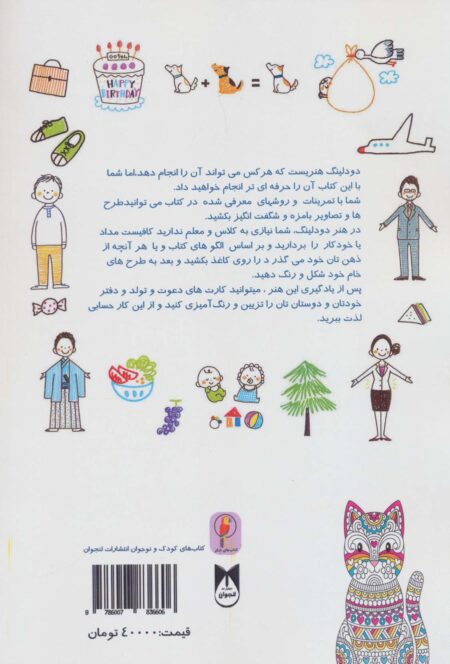 HAPPY
BIRTHDAY
دودلینگ هنریست که هرکس می تواند آن را انجام دهد.اما شما
با این کتاب آن را حرفه ای تر انجام خواهید داد.
شما با تمرینات و روشهای معرفی شده در کتاب می توانیدطرح
ها و تصاویر بامزه و شگفت انگیز بکشید.
در هنر دودلینگ، شما نیازی به کلاس و معلم ندارید کافیست مداد
یا خودکار را بردارید و بر اساس الگو های کتاب و یا هر آنچه از
ذهن تان خود می گذر د را روی کاغذ بکشید و بعد به طرح های
خام خود شکل و رنگ دهید.
پس از یادگیری این هنر ، میتوانید کارت های دعوت و تولد و دفتر
خودتان و دوستان تان را تزیین و رنگ‌آمیزی کنید و از این کار حسابی
لذت ببرید.
کتاب‌های کودک و نوجوان انتشارات لنجوان
لنجوان
9 786007 836606
قیمت:۴۰۰۰۰ تومان